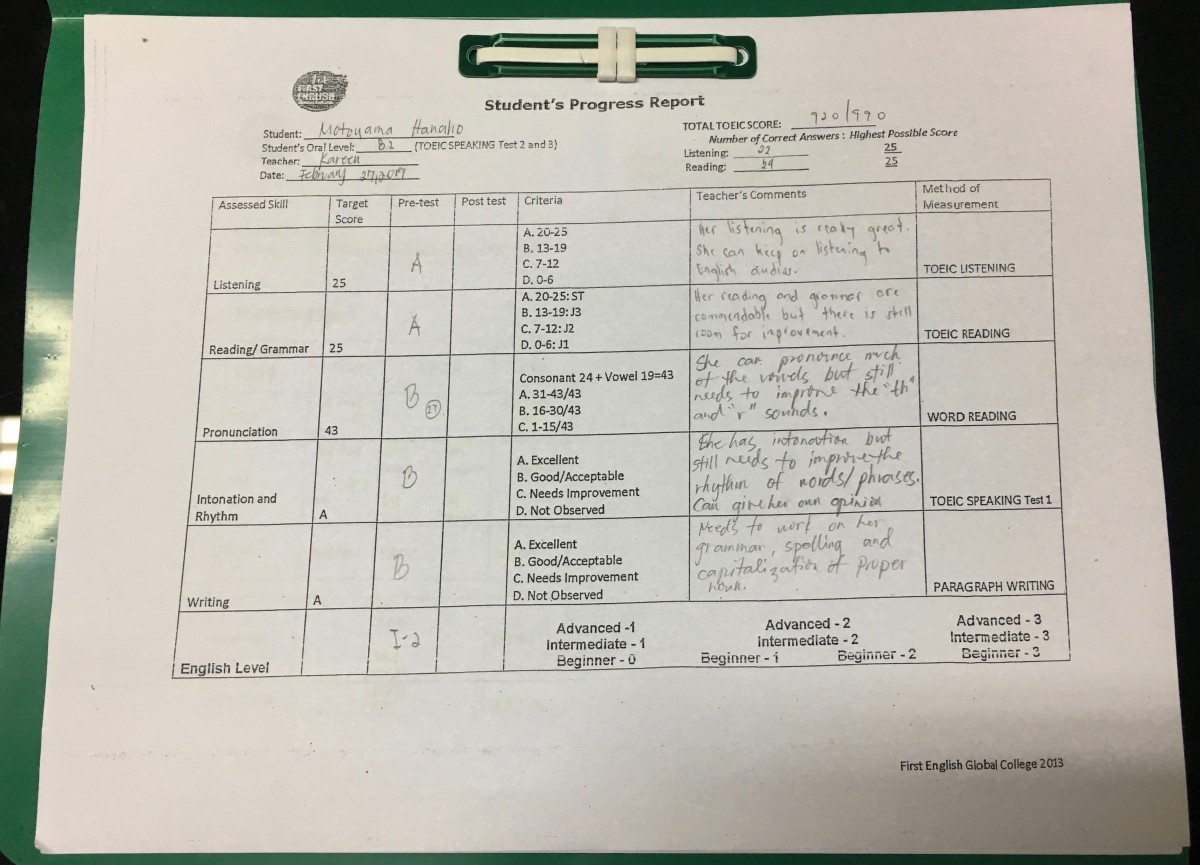 FIRST
ENGLISH
Student's Progress Report
Student: Motoyama Hanaho
Student's Oral Level: B2 (TOEIC SPEAKING Test 2 and 3)
Teacher: Kareen
Date: February 27, 2017
TOTAL TOEIC SCORE: 920/990
Number of Correct Answers : Highest Possible Score
Listening: 22 25
Reading: 24 25
Assessed Skill Target Score Pre-test Post test Criteria Teacher's Comments Method of Measurement
Listening 25 A
A. 20-25
B. 13-19
C. 7-12
D. 0-6
Her listening is really great.
She can keep on listening to
English audios.
TOEIC LISTENING
Reading/ Grammar 25 A
A. 20-25: ST
B. 13-19: J3
C. 7-12: J2
D. 0-6: J1
Her reading and grammar are
commendable but there is still
room for improvement.
TOEIC READING
Pronunciation 43 B 27
Consonant 24 + Vowel 19=43
A. 31-43/43
B. 16-30/43
C. 1-15/43
She can pronounce much
of the vowels but still
needs to improve the "th"
and "r" sounds.
WORD READING
Intonation and
Rhythm A B
A. Excellent
B. Good/Acceptable
C. Needs Improvement
D. Not Observed
She has intonation but
still needs to improve the
rhythm of words/phrases.
Can give her own opinion
TOEIC SPEAKING Test 1
Writing A B
A. Excellent
B. Good/Acceptable
C. Needs Improvement
D. Not Observed
Needs to work on her
grammar, spelling and
capitalization of proper
noun.
PARAGRAPH WRITING
English Level I-2
Advanced -1 Advanced - 2 Advanced - 3
Intermediate - 1 Intermediate - 2 Intermediate - 3
Beginner - 0 Beginner - 1 Beginner - 2 Beginner - 3
First English Global College 2013